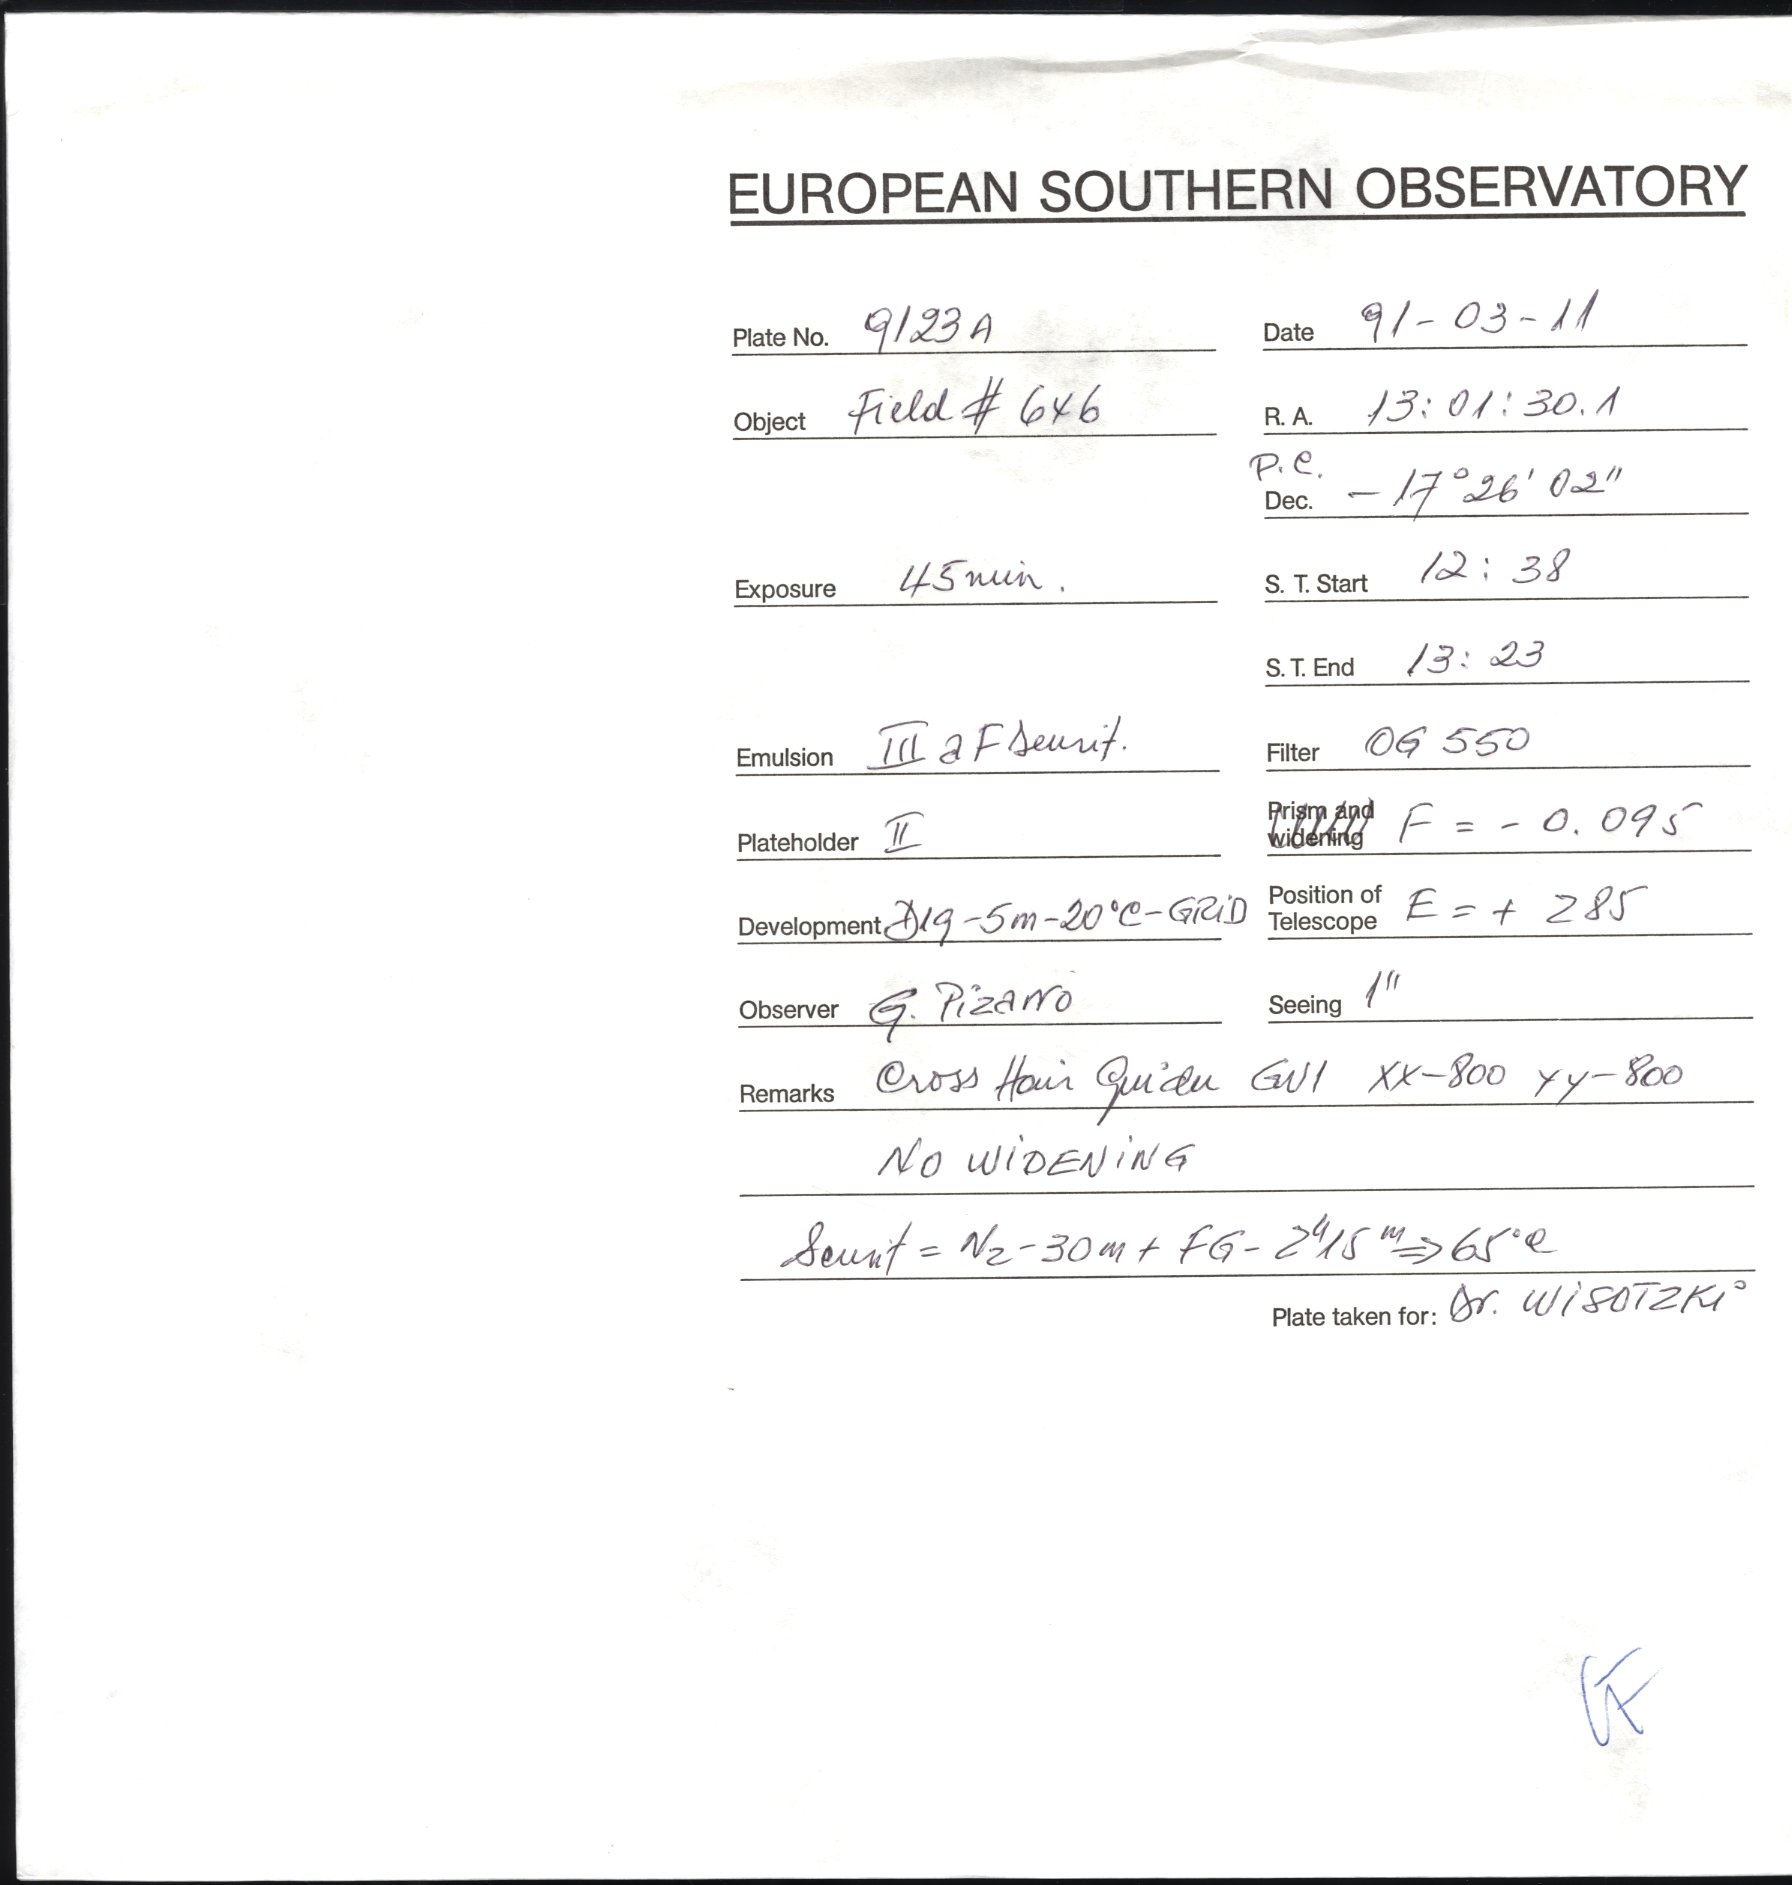 EUROPEAN SOUTHERN OBSERVATORY
Plate No. 9123A Date 91-03-11
Object Field # 646 R. A. 13:01:30.1
P.C.
Dec. -17°26'02"
Exposure 45min. S. T. Start 12:38
S. T. End 13:23
Emulsion III a F Sensit. Filter OG 550
Plateholder II Prism and widening F = -0.095
Development D19-5m-20°C-GRiD Position of Telescope E = + 285
Observer G. Pizarro Seeing 1"
Remarks Cross Hair Guider GW1 XX-800 YY-800
NO WiDENiNG
Sensit = N2-30m + FG-2h15m => 65°C
Plate taken for: Dr. WiSOTZKi